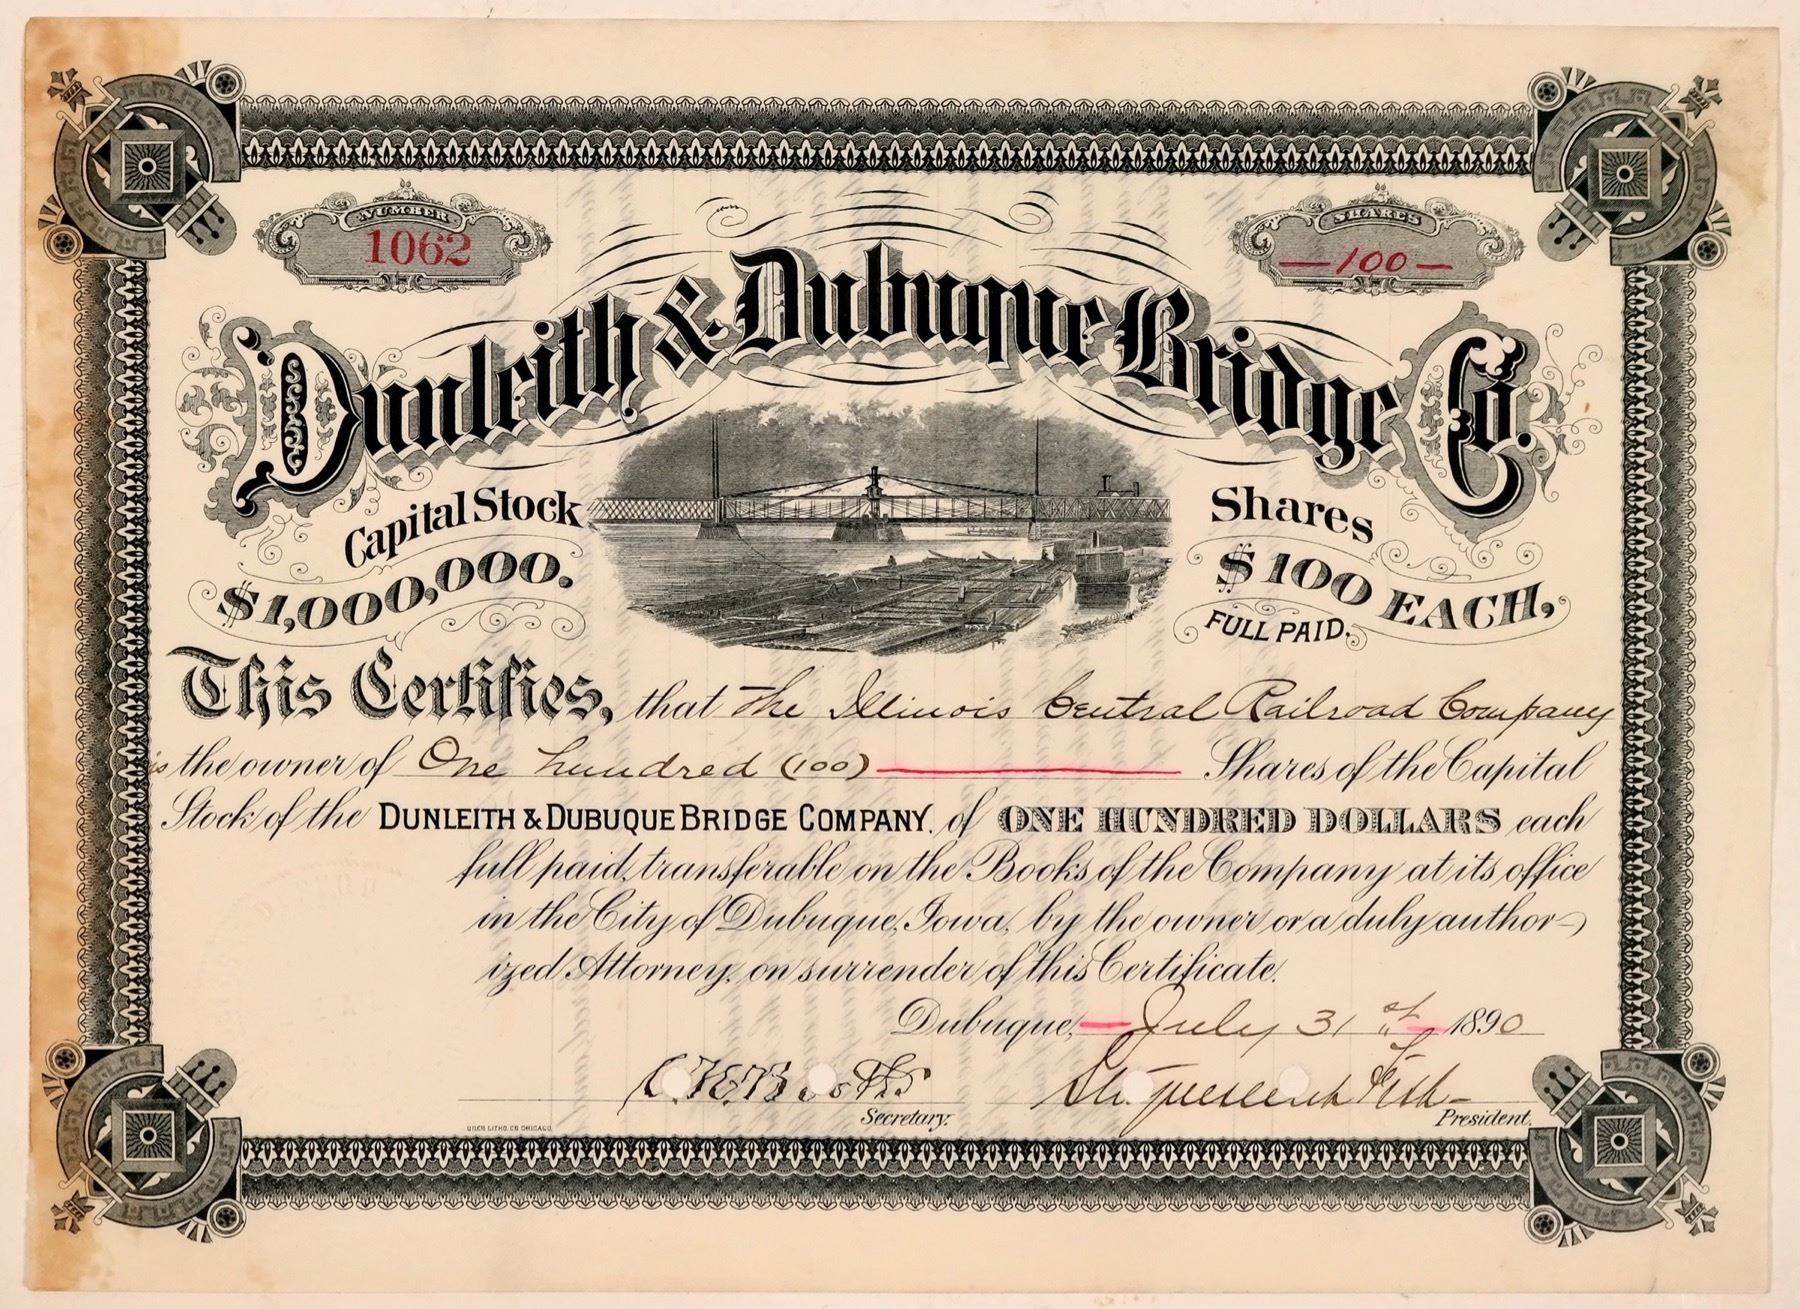 NUMBER
1062
SHARES
—100—
Dunleith & Dubuque Bridge Co.
Capital Stock
$1,000,000.
Shares
$100 EACH,
FULL PAID.
This Certifies, that The Illinois Central Railroad Company
is the owner of One hundred (100) Shares of the Capital
Stock of the DUNLEITH & DUBUQUE BRIDGE COMPANY, of ONE HUNDRED DOLLARS each
full paid, transferable on the Books of the Company at its office
in the City of Dubuque, Iowa, by the owner or a duly author-
ized Attorney, on surrender of this Certificate.
Dubuque, — July 31st — 1890
Secretary.
Stuyvesant Fish
President.
LITHO. CO CHICAGO.